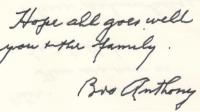 Hope all goes well
you & the family.
Bro Anthony